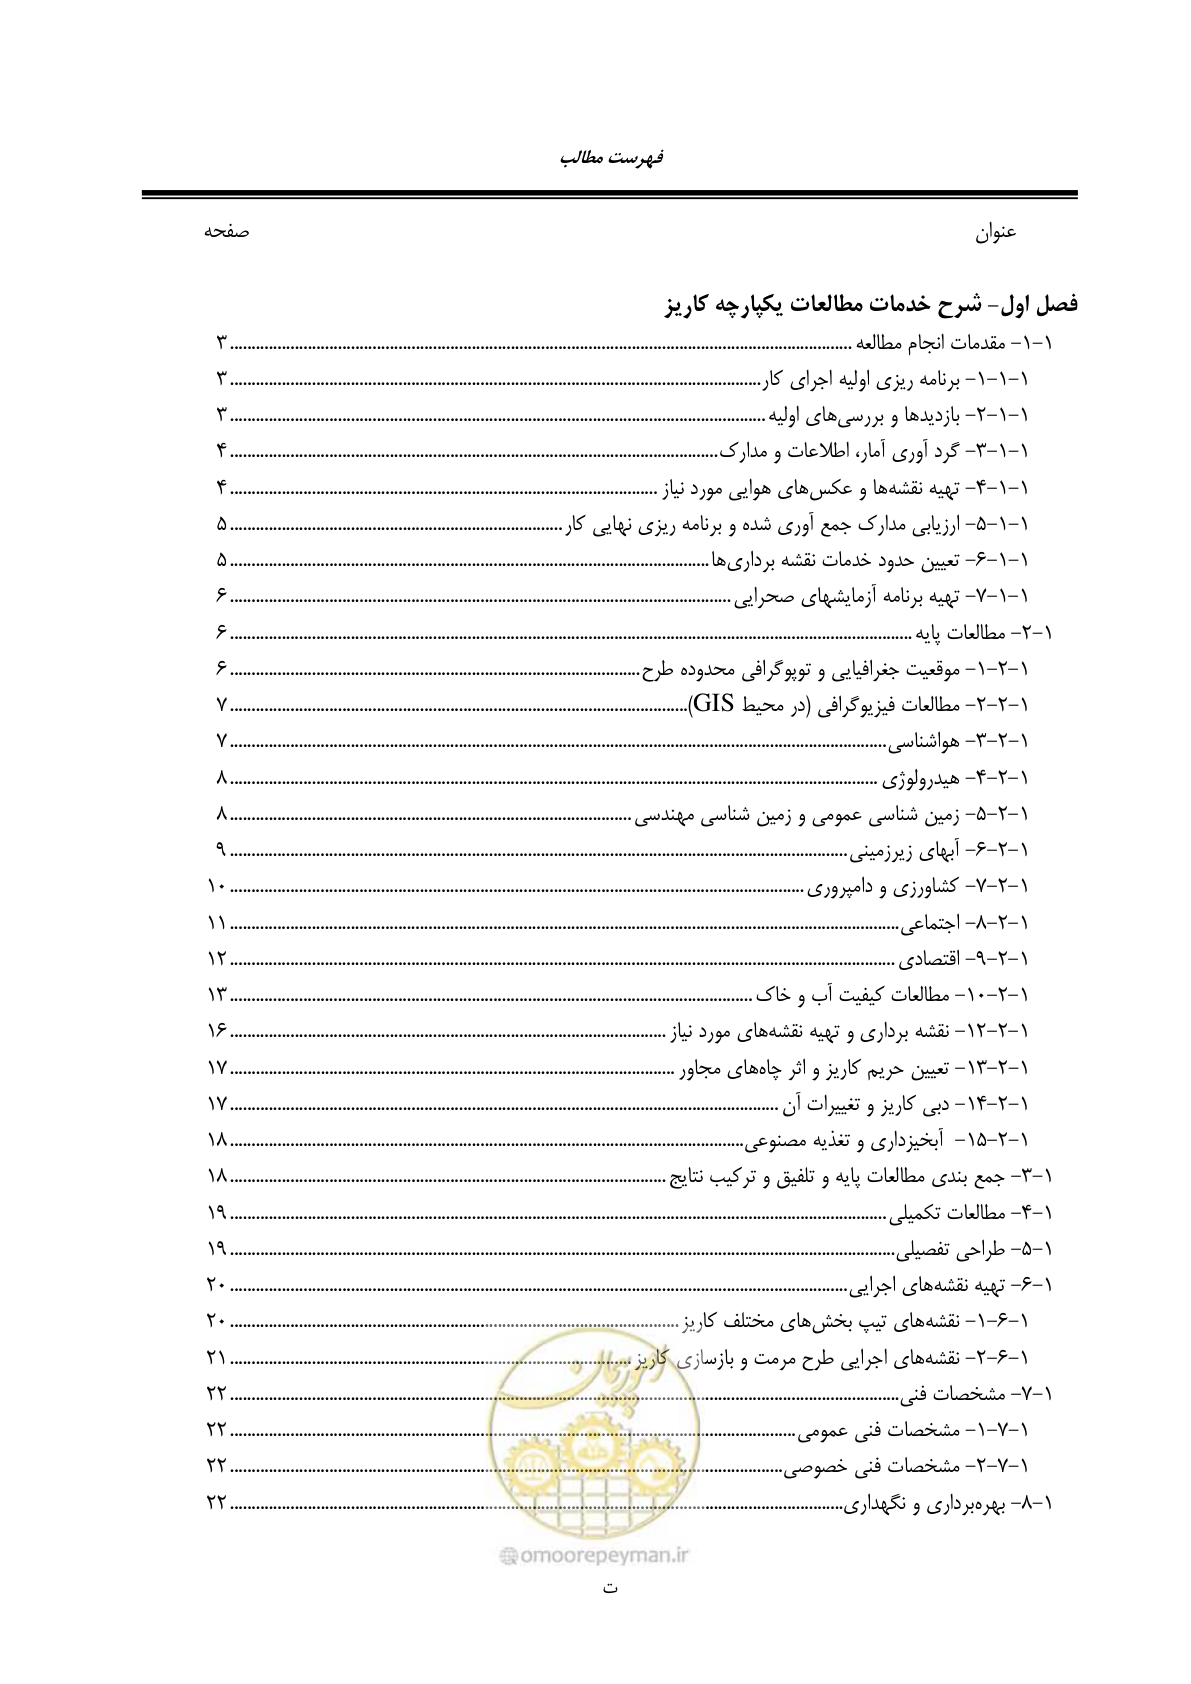 فهرست مطالب
عنوان صفحه
فصل اول- شرح خدمات مطالعات یکپارچه کاریز
۱-۱- مقدمات انجام مطالعه ........ ۳
۱-۱-۱- برنامه ریزی اولیه اجرای کار ........ ۳
۱-۱-۲- بازدیدها و بررسی‌های اولیه ........ ۳
۱-۱-۳- گرد آوری آمار، اطلاعات و مدارک ........ ۴
۱-۱-۴- تهیه نقشه‌ها و عکس‌های هوایی مورد نیاز ........ ۴
۱-۱-۵- ارزیابی مدارک جمع آوری شده و برنامه ریزی نهایی کار ........ ۵
۱-۱-۶- تعیین حدود خدمات نقشه برداری‌ها ........ ۵
۱-۱-۷- تهیه برنامه آزمایشهای صحرایی ........ ۶
۱-۲- مطالعات پایه ........ ۶
۱-۲-۱- موقعیت جغرافیایی و توپوگرافی محدوده طرح ........ ۶
۱-۲-۲- مطالعات فیزیوگرافی (در محیط GIS) ........ ۷
۱-۲-۳- هواشناسی ........ ۷
۱-۲-۴- هیدرولوژی ........ ۸
۱-۲-۵- زمین شناسی عمومی و زمین شناسی مهندسی ........ ۸
۱-۲-۶- آبهای زیرزمینی ........ ۹
۱-۲-۷- کشاورزی و دامپروری ........ ۱۰
۱-۲-۸- اجتماعی ........ ۱۱
۱-۲-۹- اقتصادی ........ ۱۲
۱-۲-۱۰- مطالعات کیفیت آب و خاک ........ ۱۳
۱-۲-۱۲- نقشه برداری و تهیه نقشه‌های مورد نیاز ........ ۱۶
۱-۲-۱۳- تعیین حریم کاریز و اثر چاه‌های مجاور ........ ۱۷
۱-۲-۱۴- دبی کاریز و تغییرات آن ........ ۱۷
۱-۲-۱۵- آبخیزداری و تغذیه مصنوعی ........ ۱۸
۱-۳- جمع بندی مطالعات پایه و تلفیق و ترکیب نتایج ........ ۱۸
۱-۴- مطالعات تکمیلی ........ ۱۹
۱-۵- طراحی تفصیلی ........ ۱۹
۱-۶- تهیه نقشه‌های اجرایی ........ ۲۰
۱-۶-۱- نقشه‌های تیپ بخش‌های مختلف کاریز ........ ۲۰
۱-۶-۲- نقشه‌های اجرایی طرح مرمت و بازسازی کاریز ........ ۲۱
۱-۷- مشخصات فنی ........ ۲۲
۱-۷-۱- مشخصات فنی عمومی ........ ۲۲
۱-۷-۲- مشخصات فنی خصوصی ........ ۲۲
۱-۸- بهره‌برداری و نگهداری ........ ۲۲
امور پیمان
@omoorepeyman.ir
ت